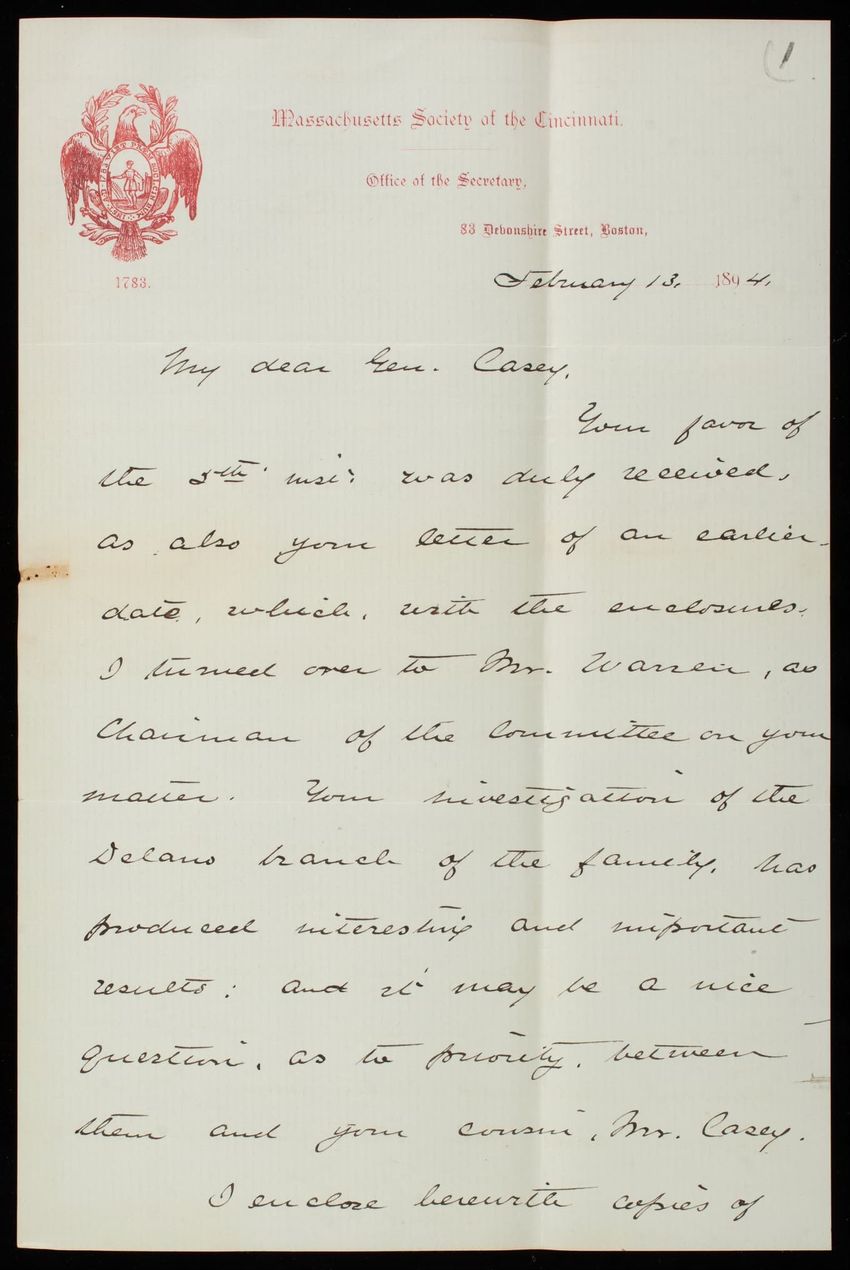 1
Massachusetts Society of the Cincinnati.
Office of the Secretary,
83 Devonshire Street, Boston,
1783.
February 13, 1894.
My dear Gen. Casey,
Your favor of
the 5th inst: was duly received,
as also your letter of an earlier
date, which, with the enclosures,
I turned over to Mr. Warren, as
Chairman of the Committee on your
matter. Your investigation of the
Delano branch of the family, has
produced interesting and important
results: and it may be a nice
question, as to priority, between
them and your cousin, Mr. Casey.
I enclose herewith copies of